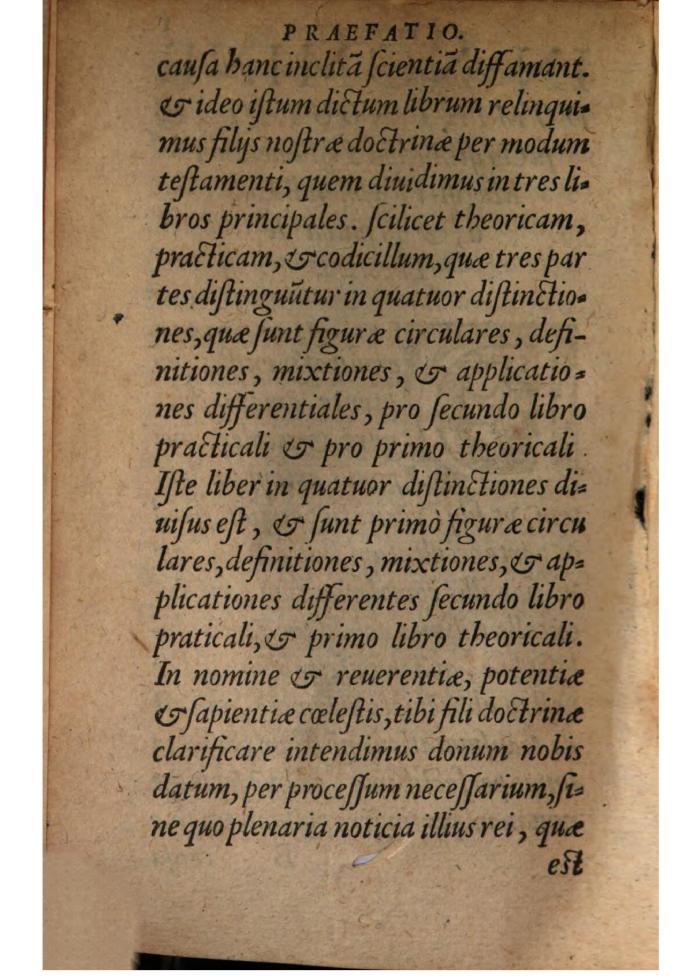 PRAEFATIO.
cauſa hanc inclitã ſcientiã diffamant.
& ideo iſtum dictum librum relinqui-
mus filijs noſtræ doctrinæ per modum
teſtamenti, quem diuidimus in tres li-
bros principales. ſcilicet theoricam,
practicam, & codicillum, quæ tres par
tes diſtinguũtur in quatuor diſtinctio-
nes, quæ ſunt figuræ circulares, defi-
nitiones, mixtiones, & applicatio-
nes differentiales, pro ſecundo libro
practicali & pro primo theoricali.
Iſte liber in quatuor diſtinctiones di-
uiſus eſt, & ſunt primò figuræ circu
lares, definitiones, mixtiones, & ap-
plicationes differentes ſecundo libro
praticali, & primo libro theoricali.
In nomine & reuerentiæ, potentiæ
& ſapientiæ cœleſtis, tibi fili doctrinæ
clarificare intendimus donum nobis
datum, per proceſſum neceſſarium, ſi-
ne quo plenaria noticia illius rei, quæ
eſt